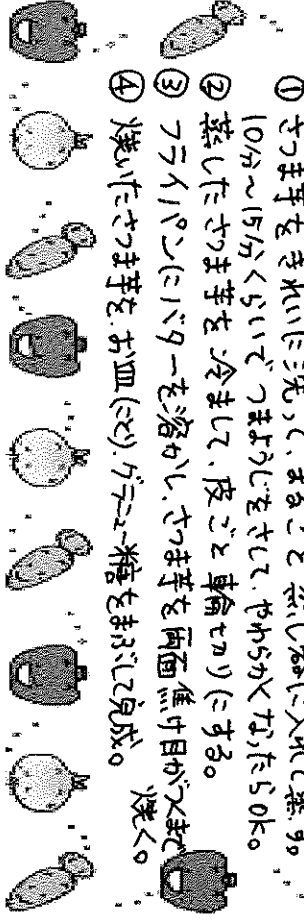 ① さつま芋をきれいに洗って、まるごと蒸し器に入れて蒸す。
10分〜15分くらいでつまようじをさして、やわらかくなったらOK。
② 蒸したさつま芋を冷まして、皮ごと輪切りにする。
③ フライパンにバターを溶かし、さつま芋を両面焦げ目がつくまで
焼く。
④ 焼いたさつま芋を、お皿にとり、グラニュー糖をまぶして完成。